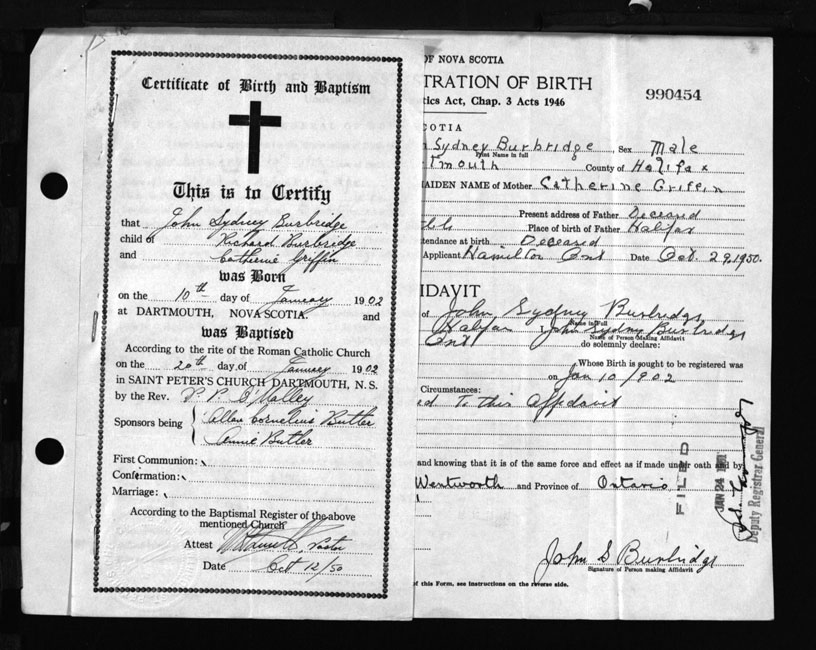 Certificate of Birth and Baptism
This is to Certify
that John Sydney Burbridge
child of Richard Burbridge
and Catherine Griffin
was Born
on the 10th day of January 1902
at DARTMOUTH, NOVA SCOTIA. and
was Baptised
According to the rite of the Roman Catholic Church
on the 20th day of January 1902
in SAINT PETER'S CHURCH DARTMOUTH, N. S.
by the Rev. P. O'Malley
Sponsors being Allan Cornelius Butler
Annie Butler
First Communion:
Confirmation:
Marriage:
According to the Baptismal Register of the above
mentioned Church
Attest Pastor
Date Oct 12/50
OF NOVA SCOTIA
TRATION OF BIRTH
tics Act, Chap. 3 Acts 1946
990454
COTIA
n Sydney Burbridge Sex Male
Print Name in full
tmouth County of Halifax
MAIDEN NAME of Mother Catherine Griffin
Present address of Father Deceased
Place of birth of Father Halifax
ttendance at birth Deceased
Applicant Hamilton Ont Date Oct. 29, 1950.
IDAVIT
of John Sydney Burbridge
Name in Full
Halifax I, John Sydney Burbridge
Ont Name of Person Making Affidavit
do solemnly declare:
Whose Birth is sought to be registered was
on Jan 10/902
Circumstances:
ed To this Affidavit
and knowing that it is of the same force and effect as if made under oath and by
Wentworth and Province of Ontario
FILED
JAN 24 1951
Deputy Registrar General
John S Burbridge
Signature of Person making Affidavit
of this Form, see instructions on the reverse side.